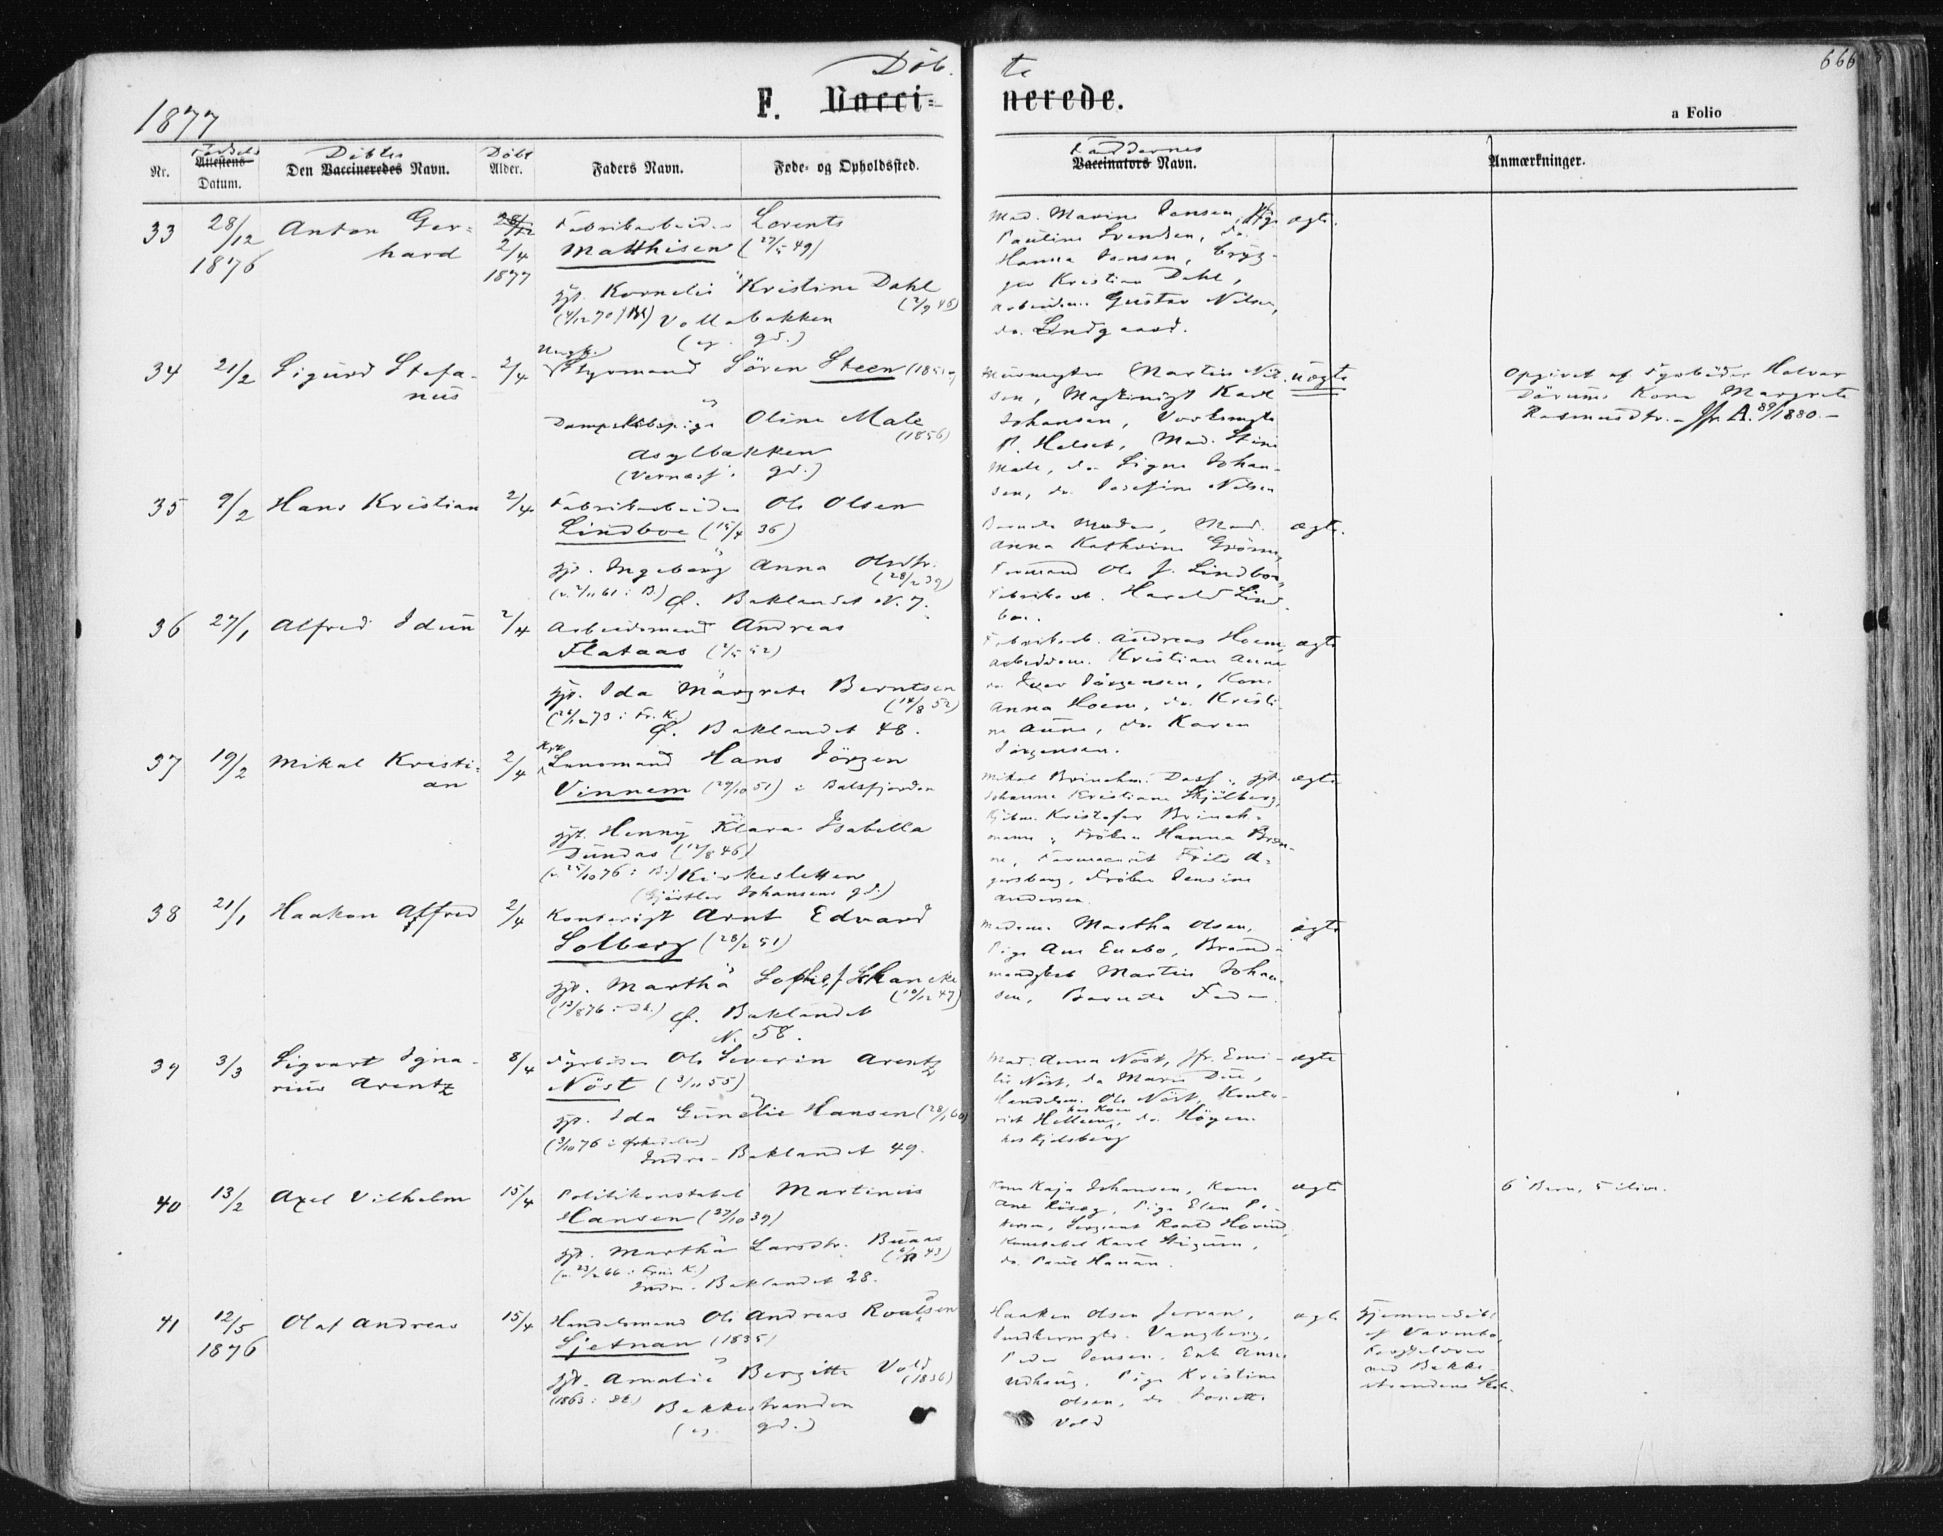 666
Döb. te
1877
F. Vacci= nerede.
a Folio
Fødsels Döbtes Döbt Faddernes
Nr. Attestens Datum. Den Vaccineredes Navn. Alder. Faders Navn. Føde- og Opholdssted. Vaccinators Navn. Anmærkninger.
33 28/12 1876 Anton Ger=
hard
28/12 2/4 1877
Fabrikarbeider Lorents
Matthisen (27/5 49)
gjt. Kornelia Kristine Dahl
(2/9 46)
Vollabakken
(eg. gd.)
Mad. Marine Jensen, Pige
Pauline Svendsen, do
Hanna Jensen, Bryg-
ger Kristian Dahl,
Arbeidsm. Gustav Nilsen,
do. Lindgaard.
ægte.
34 21/2 Sigurd Stefa-
nus
2/4
Ungk.
Styrmand Sören Steen
og
Dampskibspige Oline Male
(1856)
Asylbakken
(Vernesj. gd.)
Murmester Martin Nil-
sen, Maskinist Karl
Johansen,
P. Helset, Mad. Stine
Male, do Signe Johan-
sen, do. Josefine Nilsen
uægte
Opgivet af Fyrböder Halvor
Dörums Kone Margrete
Rasmusdtr. - Jfr. A. 89/1880 -
35 9/2 Hans Kristian 2/4
Fabrikarbeider Ole Olsen
Lindboe (15/4 36)
gjt. Ingeborg Anna Olsdtr.
(28/2 39)
Ø. Baklandet N. 7.
Barnets Moder, Mad.
Anna Kathrine Grönn,
Formand Ole J. Lindboe,
Fabrikarb. Harald Lind-
boe.
ægte.
36 27/1 Alfred Idun 2/4
Arbeidsmand Andreas
Flataas (2/5 52)
gjt. Ida Margrete Berntsen
(14/8 52)
Ø. Baklandet 48.
Fabrikarb. Andreas Hoem,
Arbeidsm. Kristian Aune
do Iver Jörgensen, Kone
Anna Hoem, do. Kristi-
ne Aune, do Karen
Jörgensen.
ægte
37 19/2 Mikal Kristi=
an
2/4
Lensmand Hans Jörgen
Vinnem (29/10 51) i Balsfjorden
gjt. Henny Klara Isabella
Dundas (12/8 46)
(v. 25/10 76 i B.) Kirkesletten
(Gjörtler Johansens gd.)
Mikal Brinchm. Dass, gjt.
Johanne Kristiane Skjölberg,
Kjöbm. Kristofer Brinch-
mann, Fröken Hanna Bren-
ne, Farmaceut Frits A-
gersborg, Fröken Jensine
Andersen.
ægte
38 21/1 Haakon Alfred 2/4
Kontorist Arnt Edvard
Solberg (28/2 51)
gjt. Martha Sofie Schancke
(10/12 47)
Ø. Baklandet
N. 58.
Madam Martha Olsen,
Pige Ane Enebo, Brand-
mandskab Martin Johan-
sen, Barnets Fader.
ægte
39 3/3 Sigvart Igna-
rius Arentz
8/4
Fyrböder Ole Severin Arentz
Nöst (3/11 55)
gjt. Ida Gunelie Hansen (28/1 60)
(3/10 76 i Orkedalen)
Indre Baklandet 49.
Mad. Anna Nöst, Jfr. Emi-
lie Nöst, do Marie Due,
Handelsm. Ole Nöst, Konto-
rist Helleem hos Koen, do. Höyem
hos Kjelsberg
ægte
40 13/2 Axel Vilhelm 15/4
Politikonstabel Martinus
Hansen (27/10 39)
gjt. Martha Larsdtr. Buaas
Indre Baklandet 28.
Kone Kaja Johansen, Kone
Ane Rösög, Pige Elen Pe-
tersen, Sergeant Roald Hovind,
Konstabel Karl Stigum,
do. Paul Hauan.
ægte
6 Barn, 5 ilive.
41 12/5 1876 Olaf Andreas 15/4
Handelsmand Ole Andreas Roaldsen
Sjetnan (1835)
gjt. Amalie Bergitte Vold
(1836)
Bakkestranden
(eg. gd.)
Haaken Olsen Jervan,
Vangberg,
Peder Jensen, Enke Anne
Udhaug, Pige Kristine
Olsen, do Jonette
Vold
ægte
Hjemmedöbt
af
ved Bakke-
strandens Skole.